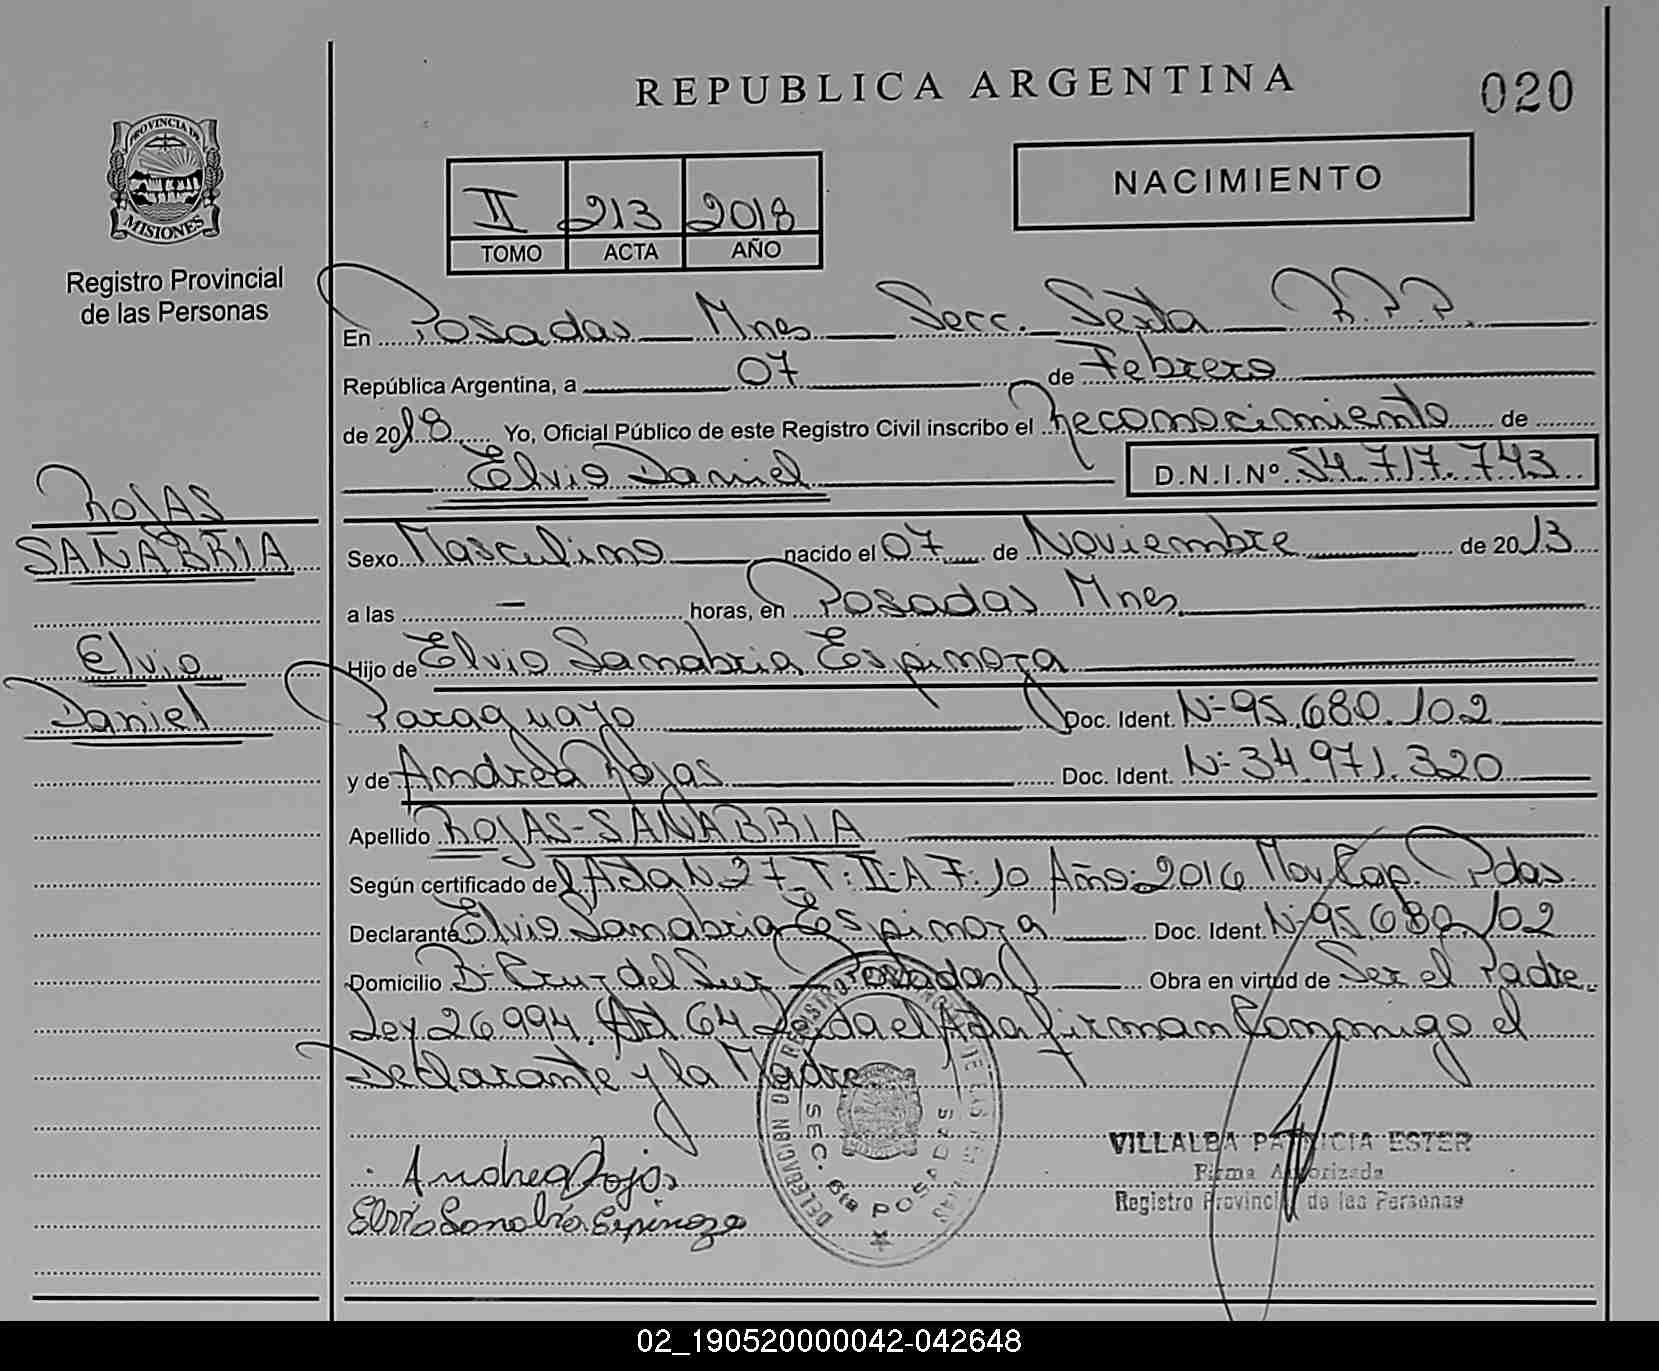 REPUBLICA ARGENTINA
020
PROVINCIA DE
MISIONES
Registro Provincial
de las Personas
NACIMIENTO
II 213 2018
TOMO ACTA AÑO
En Posadas Mnes Secc. Sexta R.P.P.
República Argentina, a 07 de Febrero
de 2018 Yo, Oficial Público de este Registro Civil inscribo el Reconocimiento de
Elvio Daniel D.N.I.Nº 54.717.743
ROJAS
SANABRIA
Elvio
Daniel
Sexo Masculino nacido el 07 de Noviembre de 2013
a las - horas, en Posadas Mnes
Hijo de Elvio Sanabria Espinoza
Paraguayo Doc. Ident. Nº 95.680.102
y de Andrea Rojas Doc. Ident. Nº 34.971.320
Apellido ROJAS-SANABRIA
Según certificado de Acta N 37 T: II-A F: 10 Año: 2016 Mov Cap. Pdas.
Declarante Elvio Sanabria Espinoza Doc. Ident. Nº 95.680.102
Domicilio Bº Cruz del Sur Posadas Obra en virtud de Ser el Padre
Ley 26.994. Art 64 Leida el Acta firman Conmigo el
Declarante y la Madre
Andrea Rojas
Elvio Sanabria Espinoza
SEC. 6ta POSADAS
VILLALBA PATRICIA ESTER
Firma Autorizada
Registro Provincial de las Personas
02_190520000042-042648